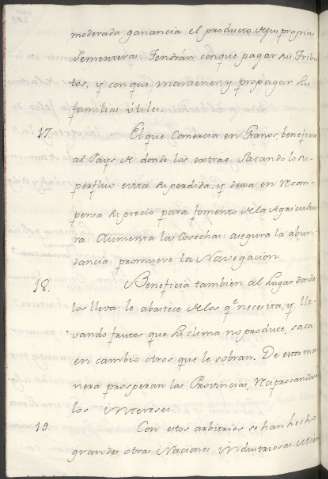 moderada ganancia el producto de su propia
Sementera. Tendrán con que pagar sus Tribu
tos, y con que mantener, y propagar su
familia util.
17. El que Comercia en Granos, beneficia
al Pays de donde los extrae. Sacando lo su
perfluo evita su perdida, y dexa en recom
pensa su precio para fomento de la Agricultu
ra. Aumenta las Cosechas: asegura la abun
dancia promueve la Navegacion.
18. Beneficia tambien al lugar donde
los lleva: lo abastece de los qe. necesita, y lle
vando frutos que su clima no produce, saca
en cambio otros que le sobran. De esta ma
nera prosperan las Provincias,
los intereses.
19. Con estos arbitrios se han hecho
grandes otras Naciones, industriosas